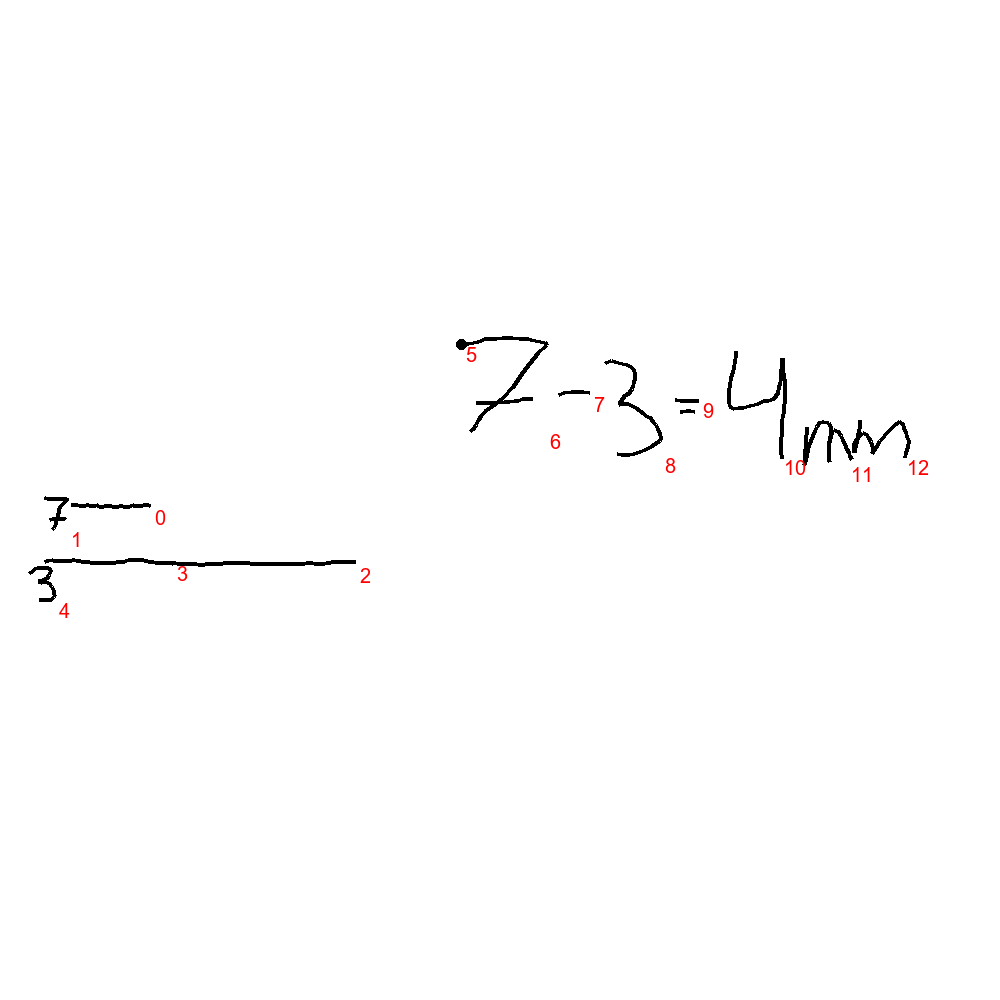 7 - 3 = 4 mm
5
6
7
8
9
10
11
12
7
0
1
3
2
3
4